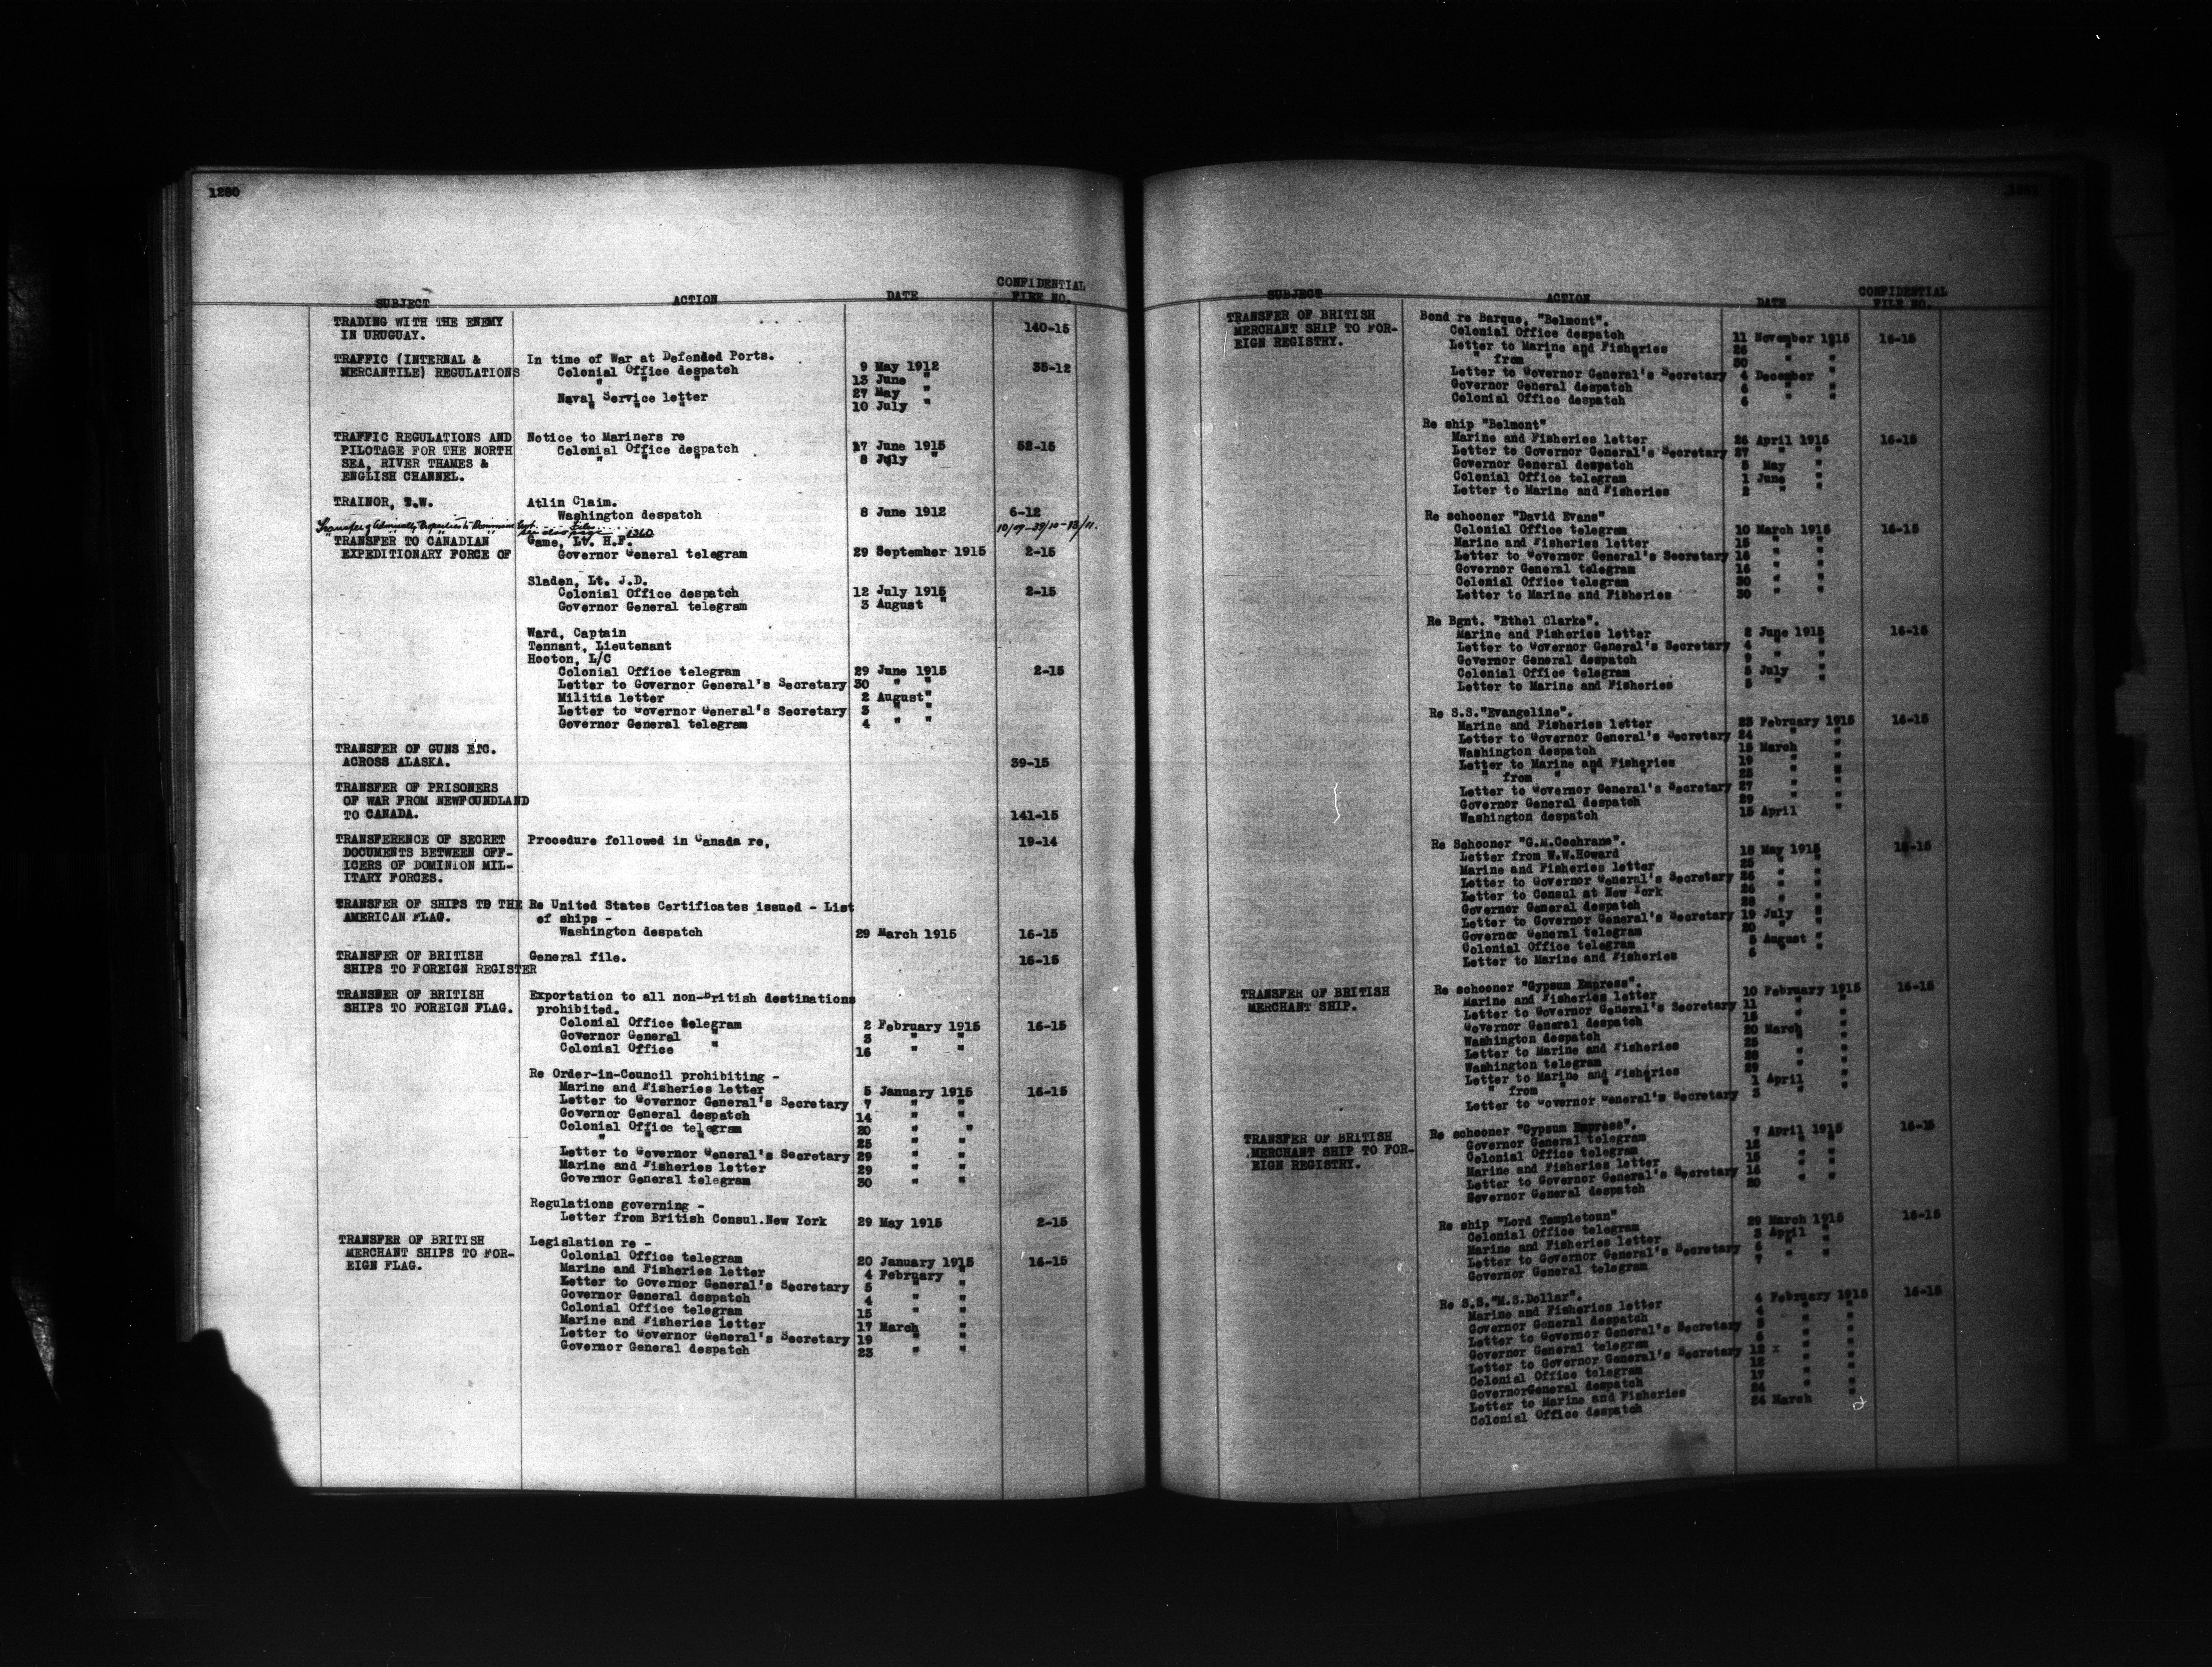 1280
SUBJECT ACTION DATE CONFIDENTIAL FILE NO.
TRADING WITH THE ENEMY
IN URUGUAY. 140-15
TRAFFIC (INTERNAL & In time of War at Defended Ports.
MERCANTILE) REGULATIONS Colonial Office despatch 9 May 1912 35-12
" " " 13 June "
Naval Service letter 27 May "
" " " 10 July "
TRAFFIC REGULATIONS AND Notice to Mariners re
PILOTAGE FOR THE NORTH Colonial Office despatch 17 June 1915 52-15
SEA, RIVER THAMES & " " " 8 July "
ENGLISH CHANNEL.
TRAINOR, T.W. Atlin Claim.
Washington despatch 8 June 1912 6-12
Transfer of Admiralty Properties to Dominion Govt. Files 10/09-39/10-13/11.
see also page 1360
TRANSFER TO CANADIAN Game, Lt. H.F.
EXPEDITIONARY FORCE OF Governor General telegram 29 September 1915 2-15
Sladen, Lt. J.D.
Colonial Office despatch 12 July 1915 2-15
Governor General telegram 3 August "
Ward, Captain
Tennant, Lieutenant
Hooton, L/C
Colonial Office telegram 29 June 1915 2-15
Letter to Governor General's Secretary 30 " "
Militia letter 2 August "
Letter to Governor General's Secretary 3 " "
Governor General telegram 4 " "
TRANSFER OF GUNS ETC.
ACROSS ALASKA. 39-15
TRANSFER OF PRISONERS
OF WAR FROM NEWFOUNDLAND
TO CANADA. 141-15
TRANSFERENCE OF SECRET Procedure followed in Canada re, 19-14
DOCUMENTS BETWEEN OFF-
ICERS OF DOMINION MIL-
ITARY FORCES.
TRANSFER OF SHIPS TO THE Re United States Certificates issued - List
AMERICAN FLAG. of ships -
Washington despatch 29 March 1915 16-15
TRANSFER OF BRITISH General file. 16-15
SHIPS TO FOREIGN REGISTER
TRANSFER OF BRITISH Exportation to all non-British destinations
SHIPS TO FOREIGN FLAG. prohibited.
Colonial Office telegram 2 February 1915 16-15
Governor General " 3 " "
Colonial Office " 16 " "
Re Order-in-Council prohibiting -
Marine and Fisheries letter 5 January 1915 16-15
Letter to Governor General's Secretary 7 " "
Governor General despatch 14 " "
Colonial Office telegram 20 " "
" " " 25 " "
Letter to Governor General's Secretary 29 " "
Marine and Fisheries letter 29 " "
Governor General telegram 30 " "
Regulations governing -
Letter from British Consul.New York 29 May 1915 2-15
TRANSFER OF BRITISH Legislation re -
MERCHANT SHIPS TO FOR- Colonial Office telegram 20 January 1915 16-15
EIGN FLAG. Marine and Fisheries letter 4 February "
Letter to Governor General's Secretary 5 " "
Governor General despatch 4 " "
Colonial Office telegram 15 " "
Marine and Fisheries letter 17 March "
Letter to Governor General's Secretary 19 " "
Governor General despatch 23 " "
SUBJECT ACTION DATE CONFIDENTIAL FILE NO.
TRANSFER OF BRITISH Bond re Barque, "Belmont".
MERCHANT SHIP TO FOR- Colonial Office despatch 11 November 1915 16-15
EIGN REGISTRY. Letter to Marine and Fisheries 26 " "
" from " " " 30 " "
Letter to Governor General's Secretary 4 December "
Governor General despatch 6 " "
Colonial Office despatch 6 " "
Re ship "Belmont"
Marine and Fisheries letter 26 April 1915 16-15
Letter to Governor General's Secretary 27 " "
Governor General despatch 5 May "
Colonial Office telegram 1 June "
Letter to Marine and Fisheries 2 " "
Re schooner "David Evans"
Colonial Office telegram 10 March 1915 16-15
Marine and Fisheries letter 15 " "
Letter to Governor General's Secretary 16 " "
Governor General telegram 16 " "
Colonial Office telegram 30 " "
Letter to Marine and Fisheries 30 " "
Re Bgnt. "Ethel Clarke".
Marine and Fisheries letter 2 June 1915 16-15
Letter to Governor General's Secretary 4 " "
Governor General despatch 9 " "
Colonial Office telegram 5 July "
Letter to Marine and Fisheries 5 " "
Re S.S."Evangeline".
Marine and Fisheries letter 23 February 1915 16-15
Letter to Governor General's Secretary 24 " "
Washington despatch 15 March "
Letter to Marine and Fisheries 19 " "
" from " " " 25 " "
Letter to Governor General's Secretary 27 " "
Governor General despatch 29 " "
Washington despatch 15 April "
Re Schooner "G.M.Cochrane".
Letter from W.W.Howard 18 May 1915 16-15
Marine and Fisheries letter 25 " "
Letter to Governor General's Secretary 26 " "
Letter to Consul at New York 26 " "
Governor General despatch 28 " "
Letter to Governor General's Secretary 19 July "
Governor General telegram 20 " "
Colonial Office telegram 5 August "
Letter to Marine and Fisheries 6 " "
TRANSFER OF BRITISH Re schooner "Gypsum Empress".
MERCHANT SHIP. Marine and Fisheries letter 10 February 1915 16-15
Letter to Governor General's Secretary 11 " "
Governor General despatch 15 " "
Washington despatch 20 March "
Letter to Marine and Fisheries 25 " "
Washington telegram 28 " "
Letter to Marine and Fisheries 29 " "
" from " " " 1 April "
Letter to Governor General's Secretary 3 " "
TRANSFER OF BRITISH Re schooner "Gypsum Empress".
MERCHANT SHIP TO FOR- Governor General telegram 7 April 1915 16-15
EIGN REGISTRY. Colonial Office telegram 12 " "
Marine and Fisheries letter 15 " "
Letter to Governor General's Secretary 16 " "
Governor General despatch 20 " "
Re ship "Lord Templetoun"
Colonial Office telegram 29 March 1915 16-15
Marine and Fisheries letter 3 April "
Letter to Governor General's Secretary 6 " "
Governor General telegram 7 " "
Re S.S."M.S.Dollar".
Marine and Fisheries letter 4 February 1915 16-15
Governor General despatch 4 " "
Letter to Governor General's Secretary 5 " "
Governor General telegram 6 " "
Letter to Governor General's Secretary 12 x " "
Colonial Office telegram 12 " "
GovernorGeneral despatch 17 " "
Letter to Marine and Fisheries 24 " "
Colonial Office despatch 24 March "